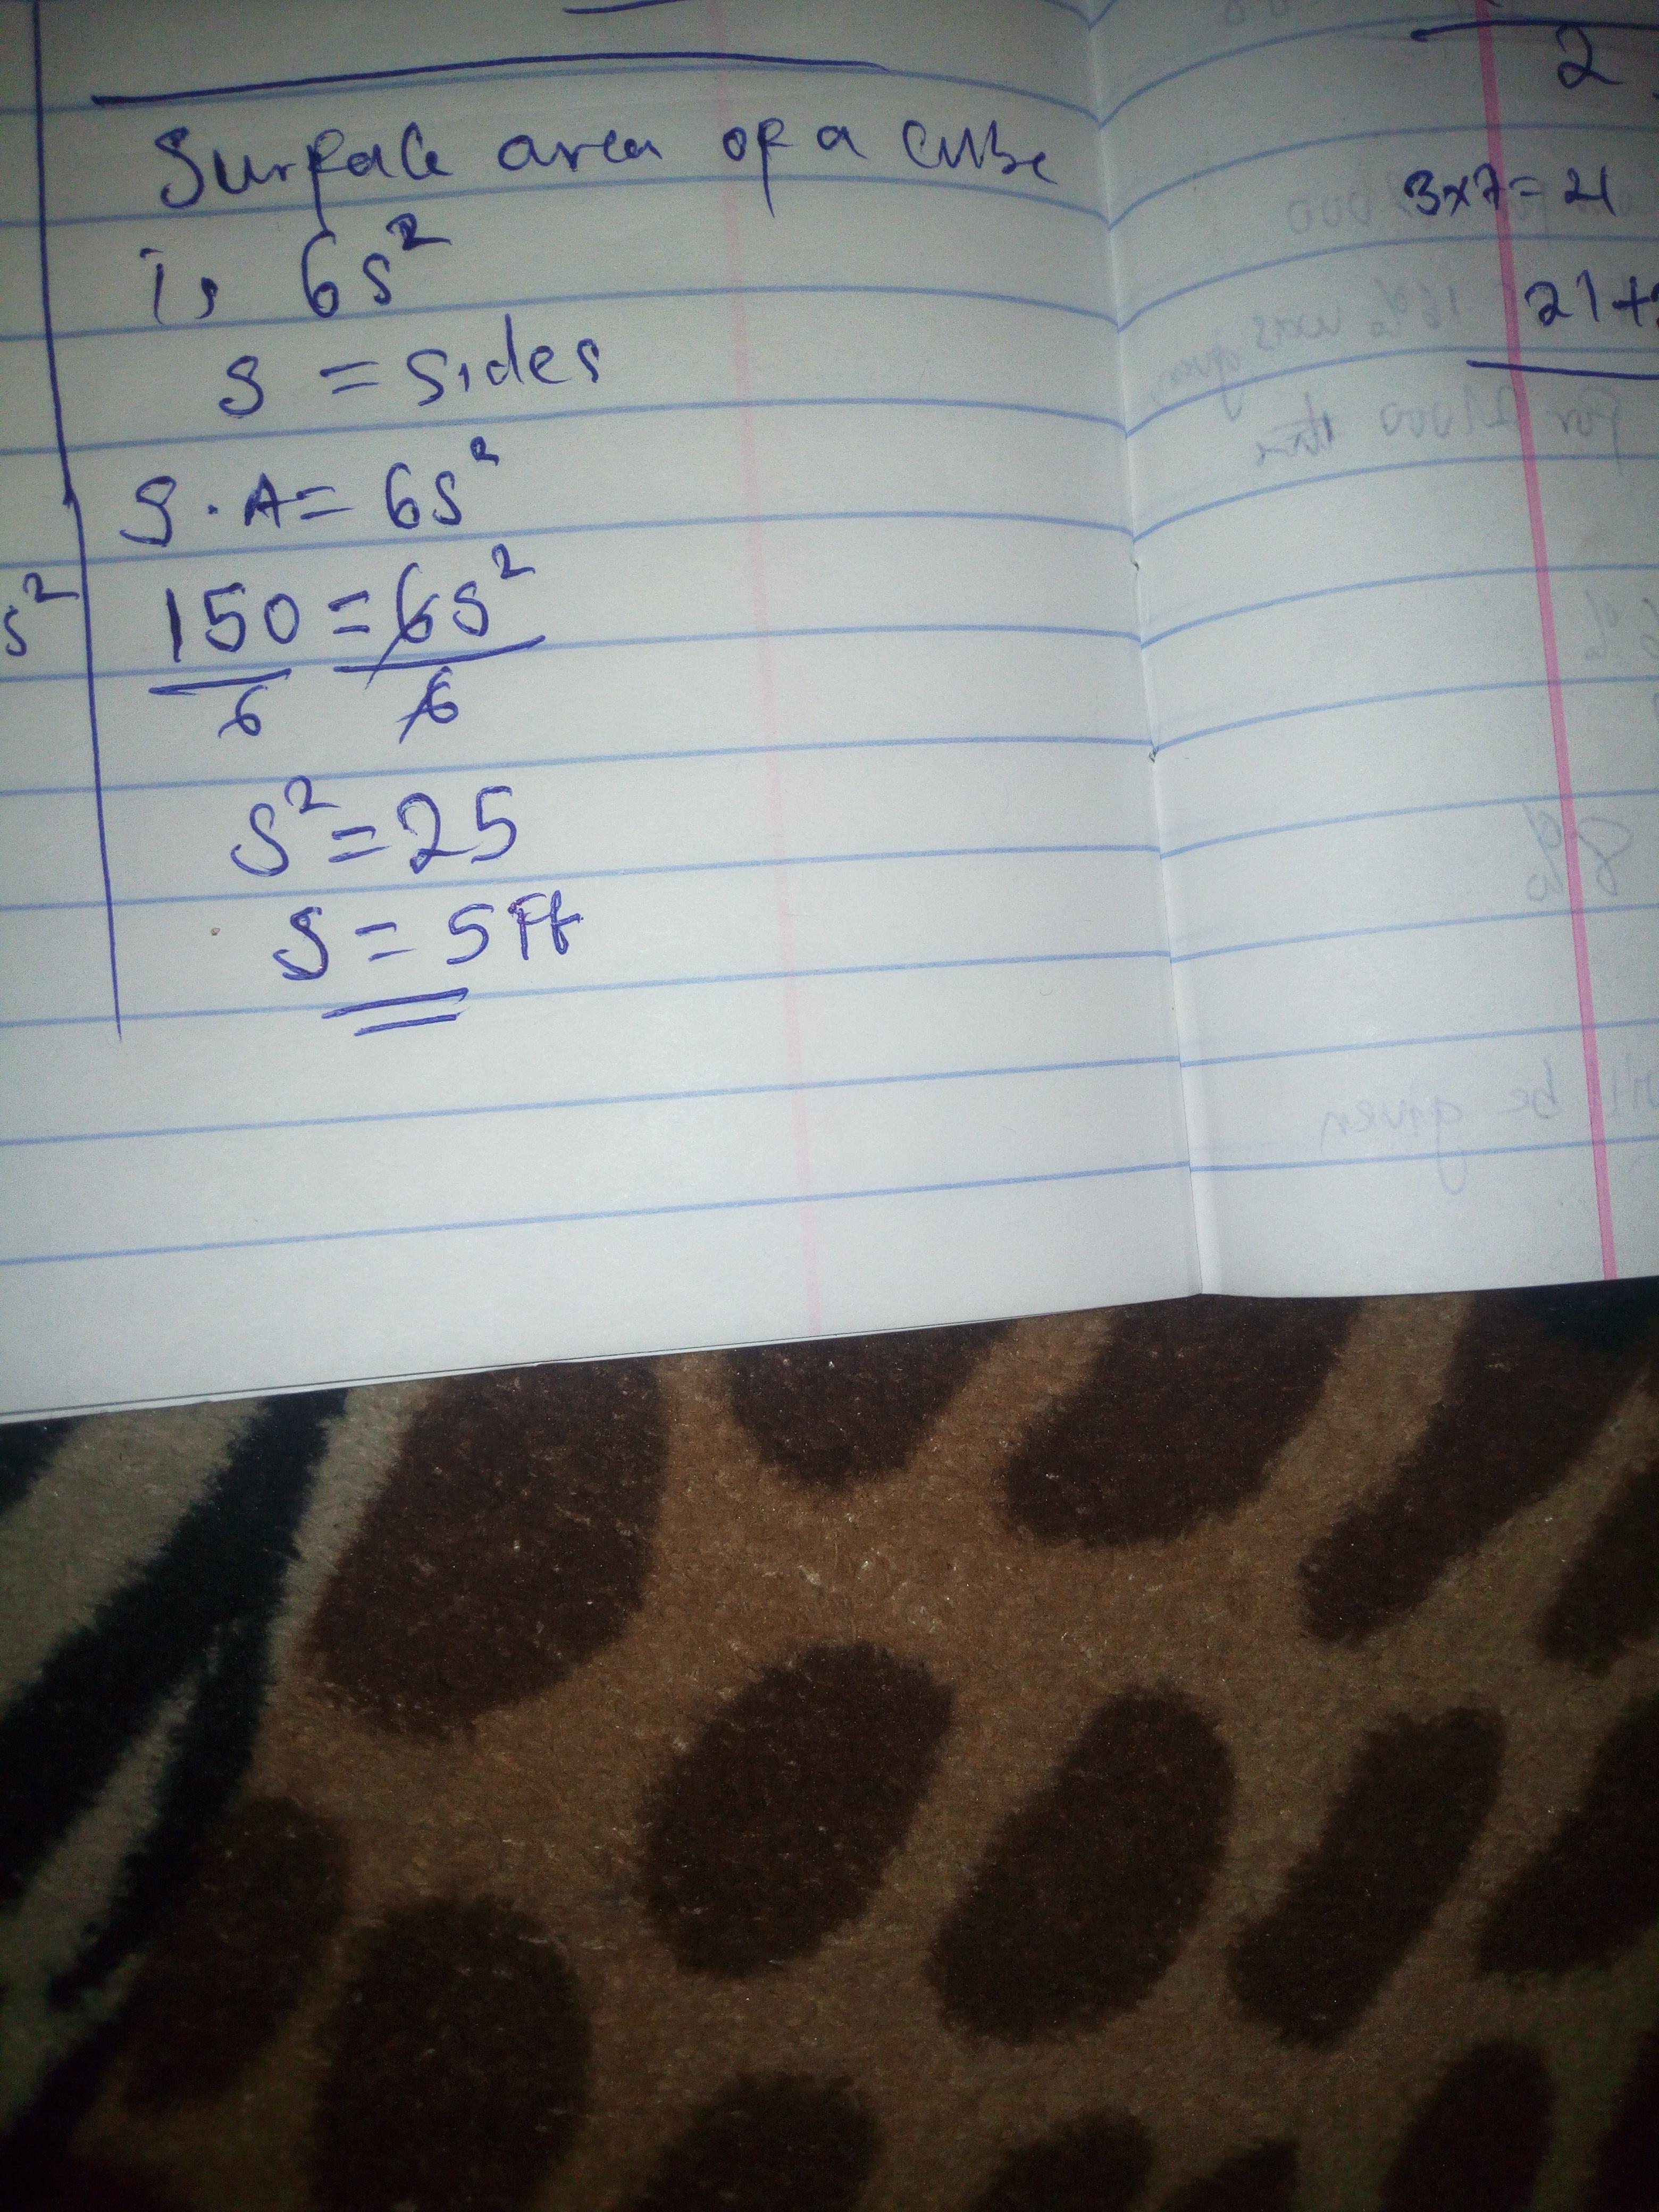 Surface area of a cube
is 6s²
s = sides
S.A = 6s²
s²
150 = 6s²
6 6
s² = 25
s = 5 ft
2
3x7=21
21+